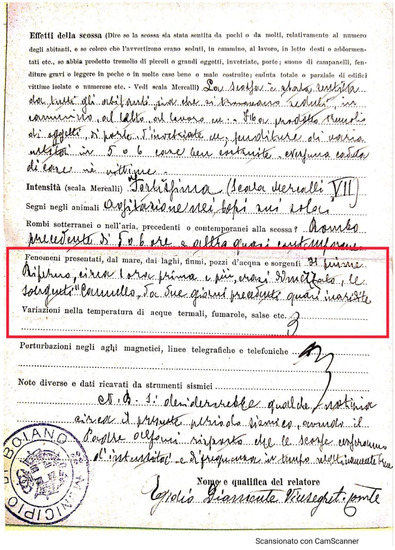 Effetti della scossa (Dire se la scossa sia stata sentita da pochi o da molti, relativamente al numero
degli abitanti, e se coloro che l'avvertirono erano seduti, in cammino, al lavoro, in letto desti o addormen-
tati ec., se abbia prodotto tremolio di piccoli o grandi oggetti, invetriate, porte; suono di campanelli, fen-
diture gravi o leggere in poche o in molte case bene o male costruite; caduta totale o parziale di edifici
vittime isolate o numerose etc. - Vedi scala Mercalli) La scossa è stata sentita
da tutti gli abitanti, sia che si trovavano seduti, in
cammino, al letto, al lavoro
di oggetti, di porte, d'invetriate fenditure di varia
in 5 o 6 case ben costruite, nessuna caduta
di case nè vittime.
Intensità (scala Mercalli) "Fortissima (Scala Mercalli VII)
Segni negli animali agitazione nei topi sui solai
Rombi sotterranei o nell'aria, precedenti o contemporanei alla scossa? Rombo
precedente di 5 o 6 ore e altro quasi contemporaneo
Fenomeni presentati, dal mare, dai laghi, fiumi, pozzi d'acqua e sorgenti Il fiume
Biferno, circa 1 ora prima e più, erasi dimezzato, le
sorgenti da due giorni precedenti quasi inaridite
Variazioni nella temperatura di acque termali, fumarole, salse etc.
Perturbazioni negli aghi magnetici, linee telegrafiche e telefoniche
Note diverse e dati ricavati da strumenti sismici
N.B. Si desidererebbe qualche notizia
circa il presente periodo sismico, avendo il
Padre Alfani risposto che le scosse
d'intensità e di frequenza in tempo
Nome e qualifica del relatore
MUNICIPIO DI BOIANO
Scansionato con CamScanner